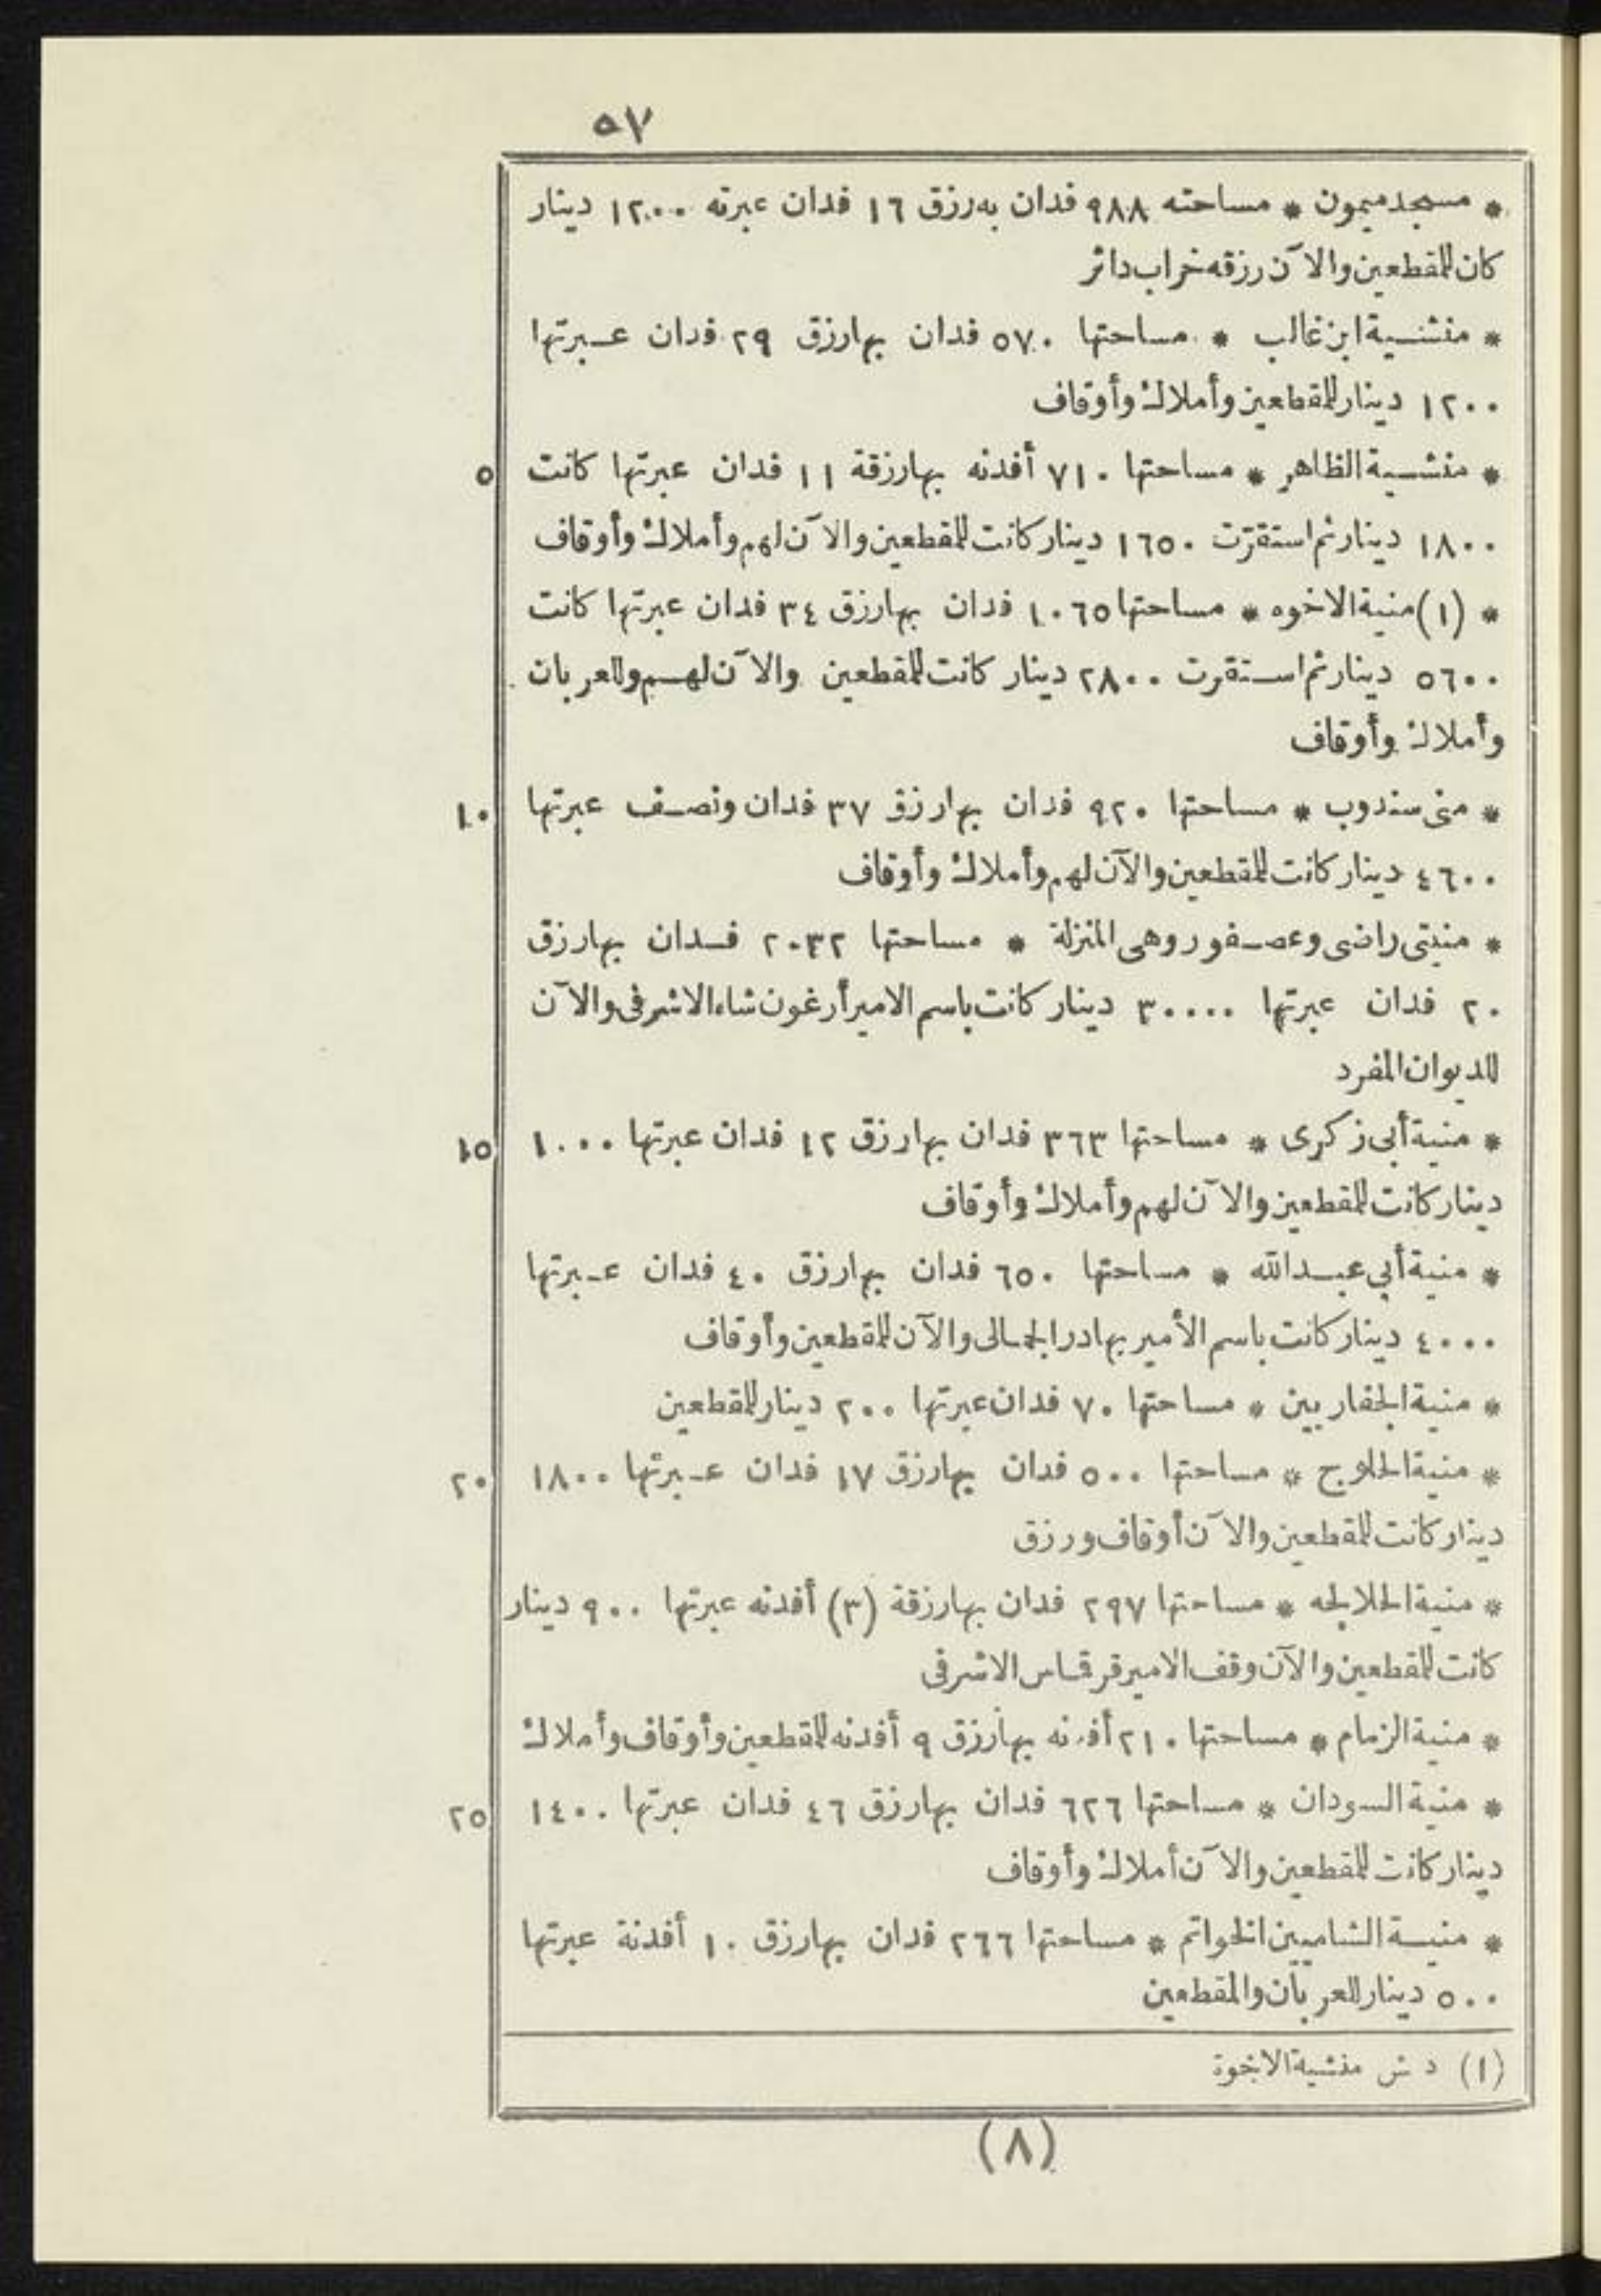 ٥٧
* مسجد ميمون * مساحته ٩٨٨ فدان به رزق ١٦ فدان عبرته ١٢٠٠ دينار
كان للمقطعين والآن رزقه خراب داثر
* منشية ابن غالب * مساحتها ٥٧٠ فدان بها رزق ٢٩ فدان عبرتها
١٢٠٠ دينار للمقطعين وأملاك وأوقاف
* منشية الظاهر * مساحتها ٧١٠ أفدنه بها رزقة ١١ فدان عبرتها كانت ٥
١٨٠٠ دينار ثم استقرّت ١٦٥٠ دينار كانت للمقطعين والآن لهم وأملاك وأوقاف
* (١) منية الاخوه * مساحتها ١٠٦٥ فدان بها رزق ٣٤ فدان عبرتها كانت
٥٦٠٠ دينار ثم استقرت ٢٨٠٠ دينار كانت للمقطعين والآن لهم وللعربان
وأملاك وأوقاف
* منى سندوب * مساحتها ٩٢٠ فدان بها رزق ٣٧ فدان ونصف عبرتها ١٠
٤٦٠٠ دينار كانت للمقطعين والآن لهم وأملاك وأوقاف
* منيتى راضى وعصفور وهى المنزلة * مساحتها ٢٠٣٢ فدان بها رزق
٢٠ فدان عبرتها ٣٠٠٠٠ دينار كانت باسم الامير أرغون شاه الاشرفى والآن
للديوان المفرد
* منية أبى زكرى * مساحتها ٣٦٣ فدان بها رزق ١٢ فدان عبرتها ١٠٠٠ ١٥
دينار كانت للمقطعين والآن لهم وأملاك وأوقاف
* منية أبي عبد الله * مساحتها ٦٥٠ فدان بها رزق ٤٠ فدان عبرتها
٤٠٠٠ دينار كانت باسم الأمير بهادر الجمالى والآن للمقطعين وأوقاف
* منية الجفاريين * مساحتها ٧٠ فدان عبرتها ٢٠٠ دينار للمقطعين
* منية الحلوج * مساحتها ٥٠٠ فدان بها رزق ١٧ فدان عبرتها ١٨٠٠ ٢٠
دينار كانت للمقطعين والآن أوقاف ورزق
* منية الحلالجه * مساحتها ٢٩٧ فدان بها رزقة (٣) أفدنه عبرتها ٩٠٠ دينار
كانت للمقطعين والآن وقف الامير قرقماس الاشرفى
* منية الزمام * مساحتها ٢١٠ أفدنه بها رزق ٩ أفدنه للمقطعين وأوقاف وأملاك
* منية السودان * مساحتها ٦٢٦ فدان بها رزق ٤٦ فدان عبرتها ١٤٠٠ ٢٥
دينار كانت للمقطعين والآن أملاك وأوقاف
* منية الشاميين الخواتم * مساحتها ٢٦٦ فدان بها رزق ١٠ أفدنة عبرتها
٥٠٠ دينار للعربان والمقطعين
(١) د ش منشية الاخوة
(٨)